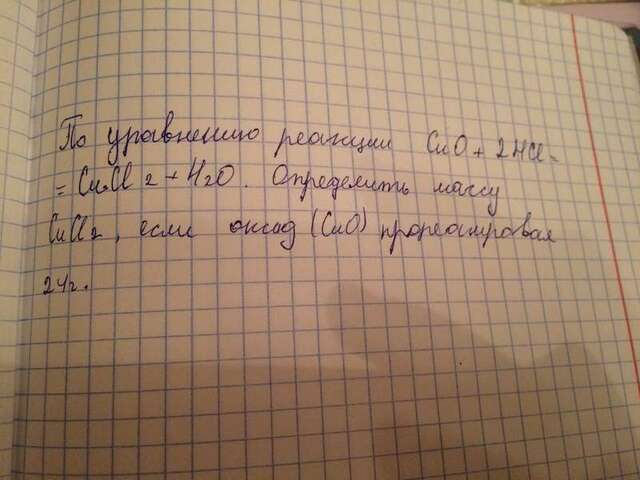 По уравнению реакции CuO + 2HCl =
= CuCl2 + H2O. Определить массу
CuCl2, если оксид (CuO) прореагировал
24г.